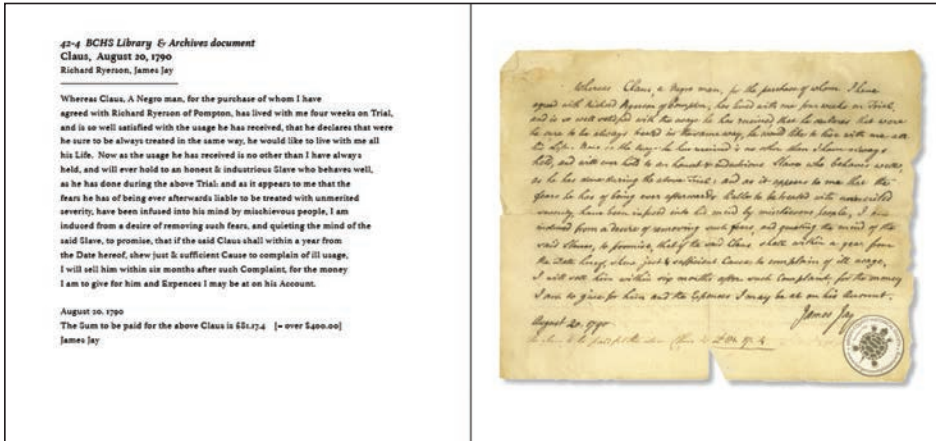 42-4 BCHS Library & Archives document
Claus, August 20, 1790
Richard Ryerson, James Jay
Whereas Claus, A Negro man, for the purchase of whom I have
agreed with Richard Ryerson of Pompton, has lived with me four weeks on Trial,
and is so well satisfied with the usage he has received, that he declares that were
he sure to be always treated in the same way, he would like to live with me all
his Life. Now as the usage he has received is no other than I have always
held, and will ever hold to an honest & industrious Slave who behaves well,
as he has done during the above Trial: and as it appears to me that the
fears he has of being ever afterwards liable to be treated with unmerited
severity, have been infused into his mind by mischievous people, I am
induced from a desire of removing such fears, and quieting the mind of the
said Slave, to promise, that if the said Claus shall within a year from
the Date hereof, shew just & sufficient Cause to complain of ill usage,
I will sell him within six months after such Complaint, for the money
I am to give for him and Expences I may be at on his Account.
August 20. 1790
The Sum to be paid for the above Claus is £81.17.4 [= over $400.00]
James Jay
Whereas Claus, a Negro man, for the purchase of whom I have
agreed with Richard Ryerson of Pompton, has lived with me four weeks on Trial,
and is so well satisfied with the usage he has received that he declares that were
he sure to be always treated in the same way, he would like to live with me all
his Life. Now as the usage he has received is no other than I have always
held, and will ever hold to an honest & industrious Slave who behaves well,
as he has done during the above Trial: and as it appears to me that the
fears he has of being ever afterwards liable to be treated with unmerited
severity, have been infused into his mind by mischievous people, I am
induced from a desire of removing such fears, and quieting the mind of the
said Slave, to promise, that if the said Claus shall within a year from
the Date hereof, shew just & sufficient Cause to complain of ill usage,
I will sell him within six months after such Complaint, for the money
I am to give for him and the Expences I may be at on his Account.
James Jay
August 20. 1790
the Sum to be paid for the above Claus is